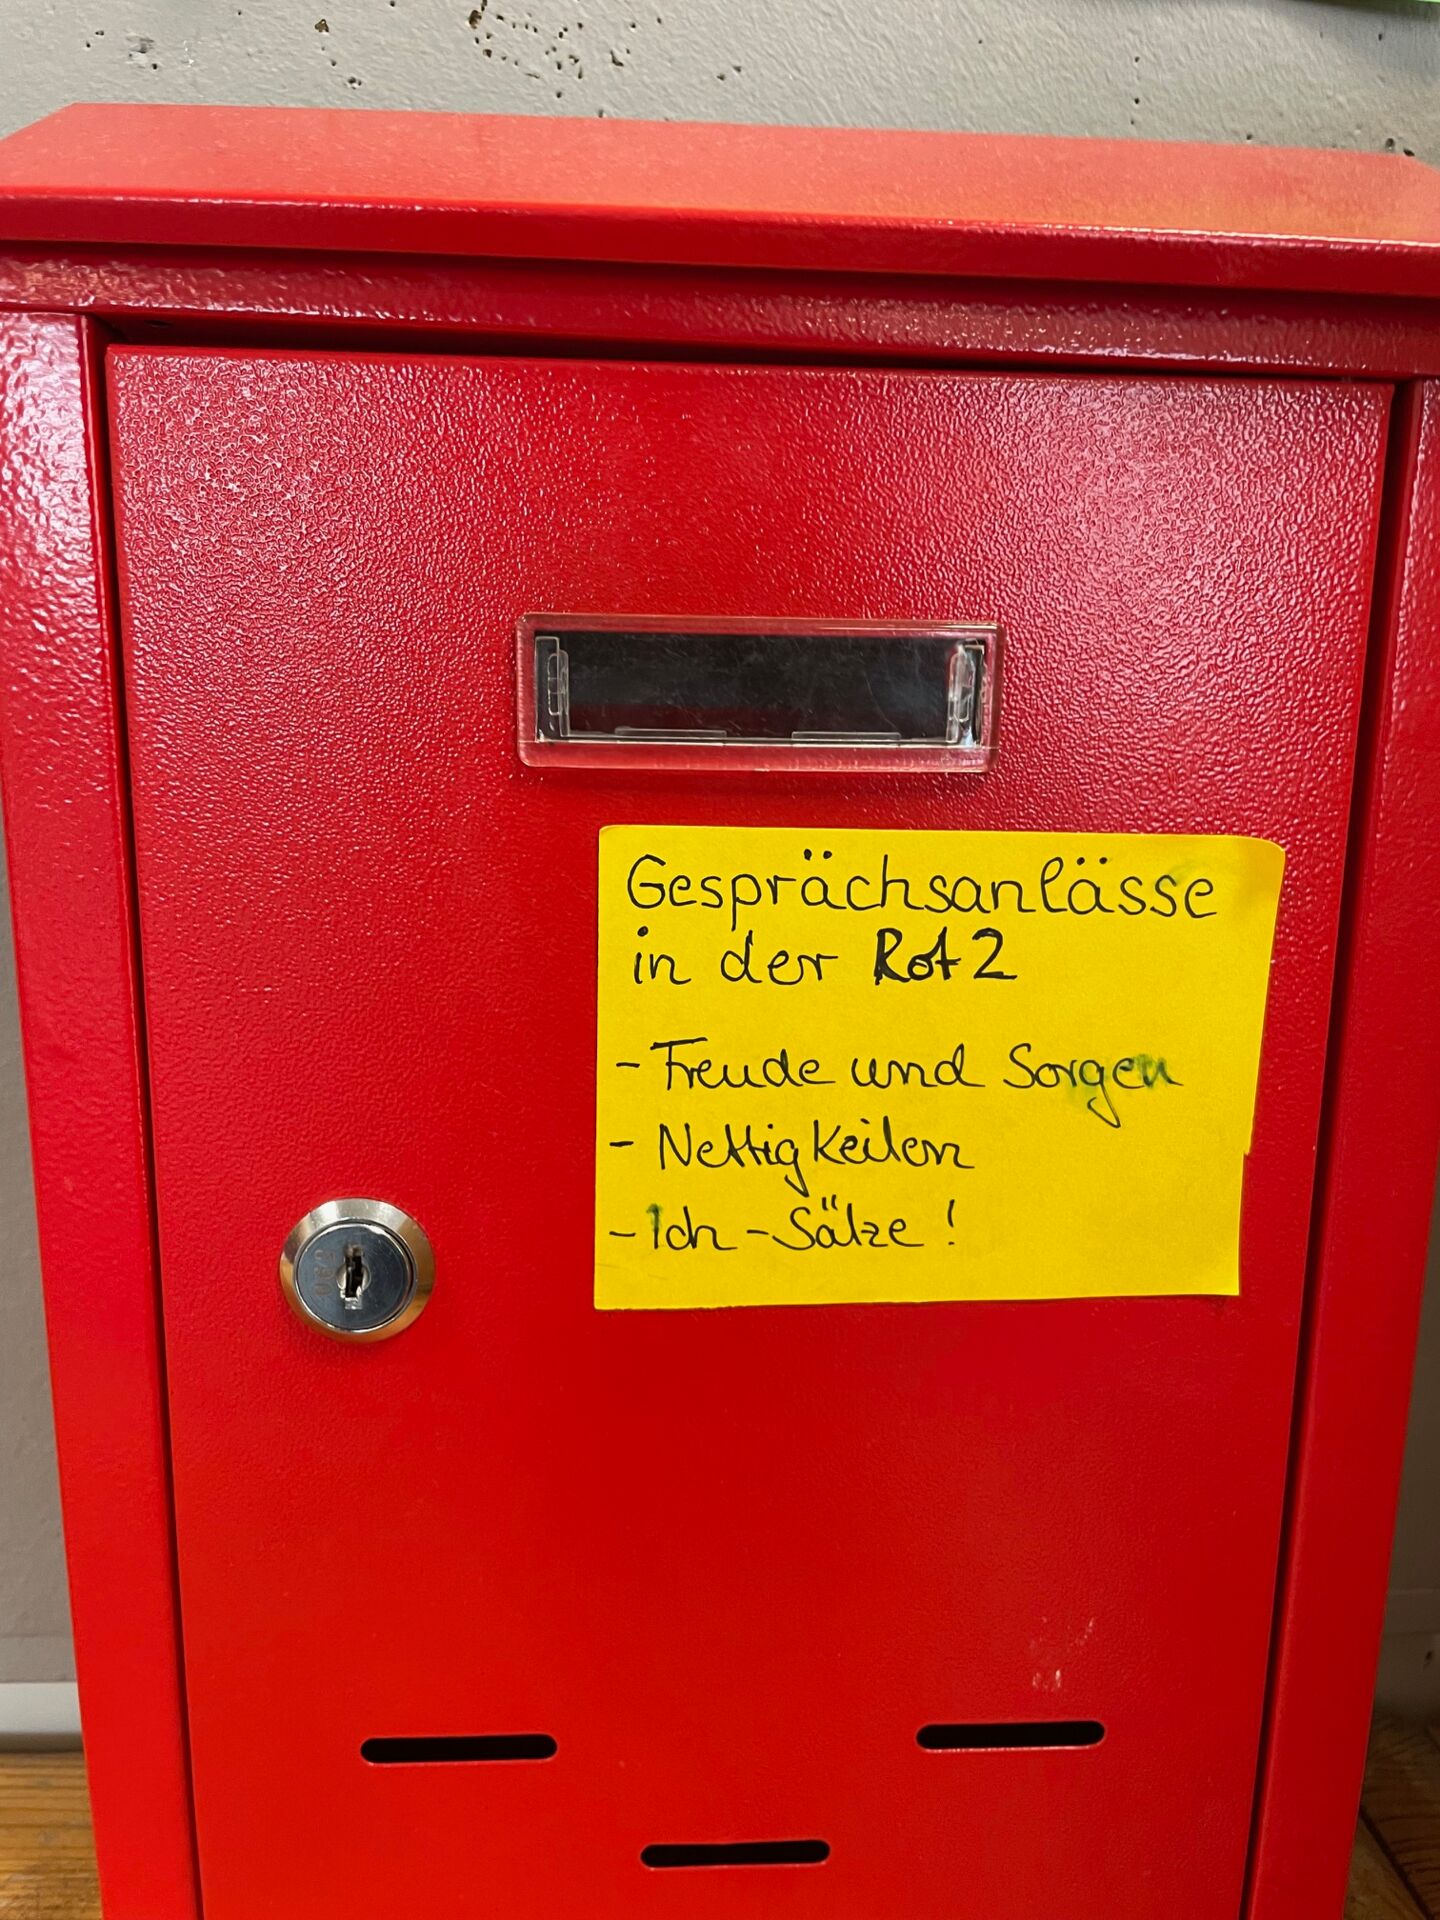 Gesprächsanlässe
in der Rot 2
- Freude und Sorgen
- Nettigkeiten
- Ich-Sätze!